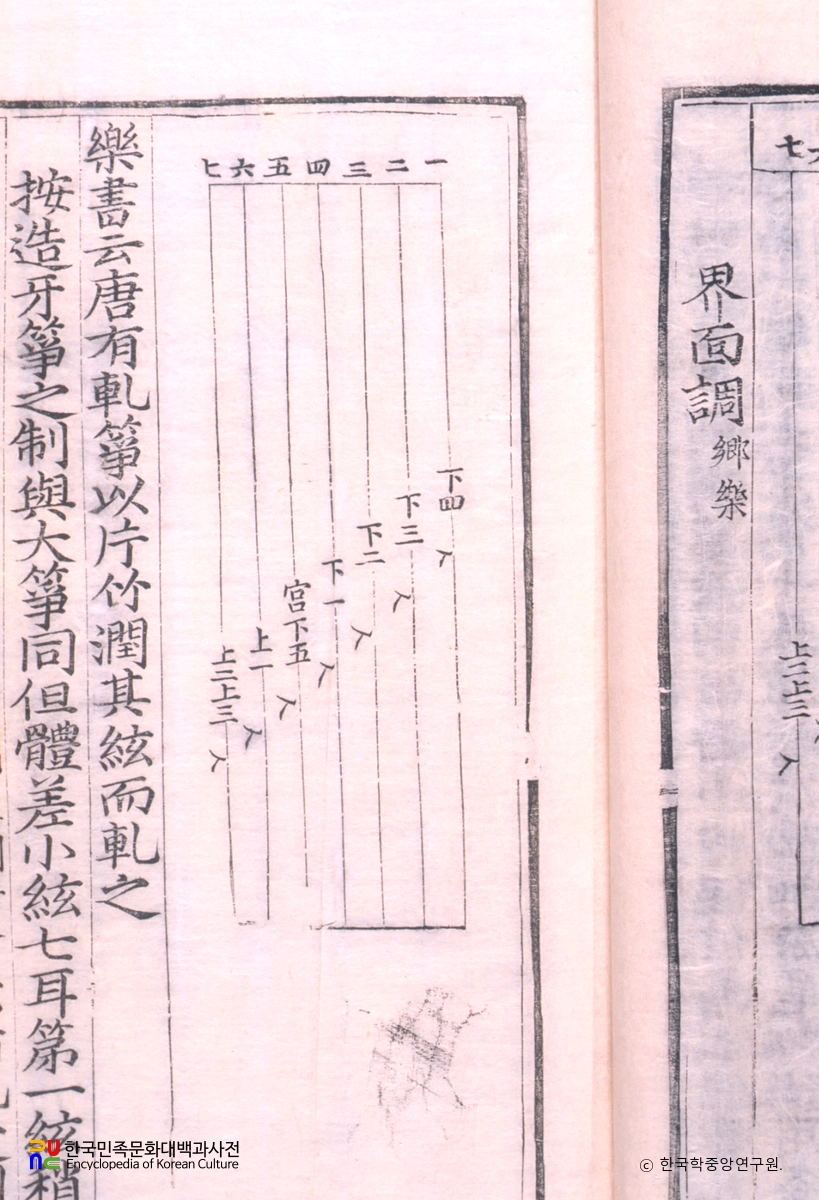 七
上二上三
界面調 鄕樂
一 二 三 四 五 六 七
下四
下三
下二
下一
宮下五
上一
上二上三
樂書云唐有軋箏以片竹潤其絃而軋之
按造牙箏之制與大箏同但體差小絃七耳第一絃稍
한국민족문화대백과사전
Encyclopedia of Korean Culture
© 한국학중앙연구원.